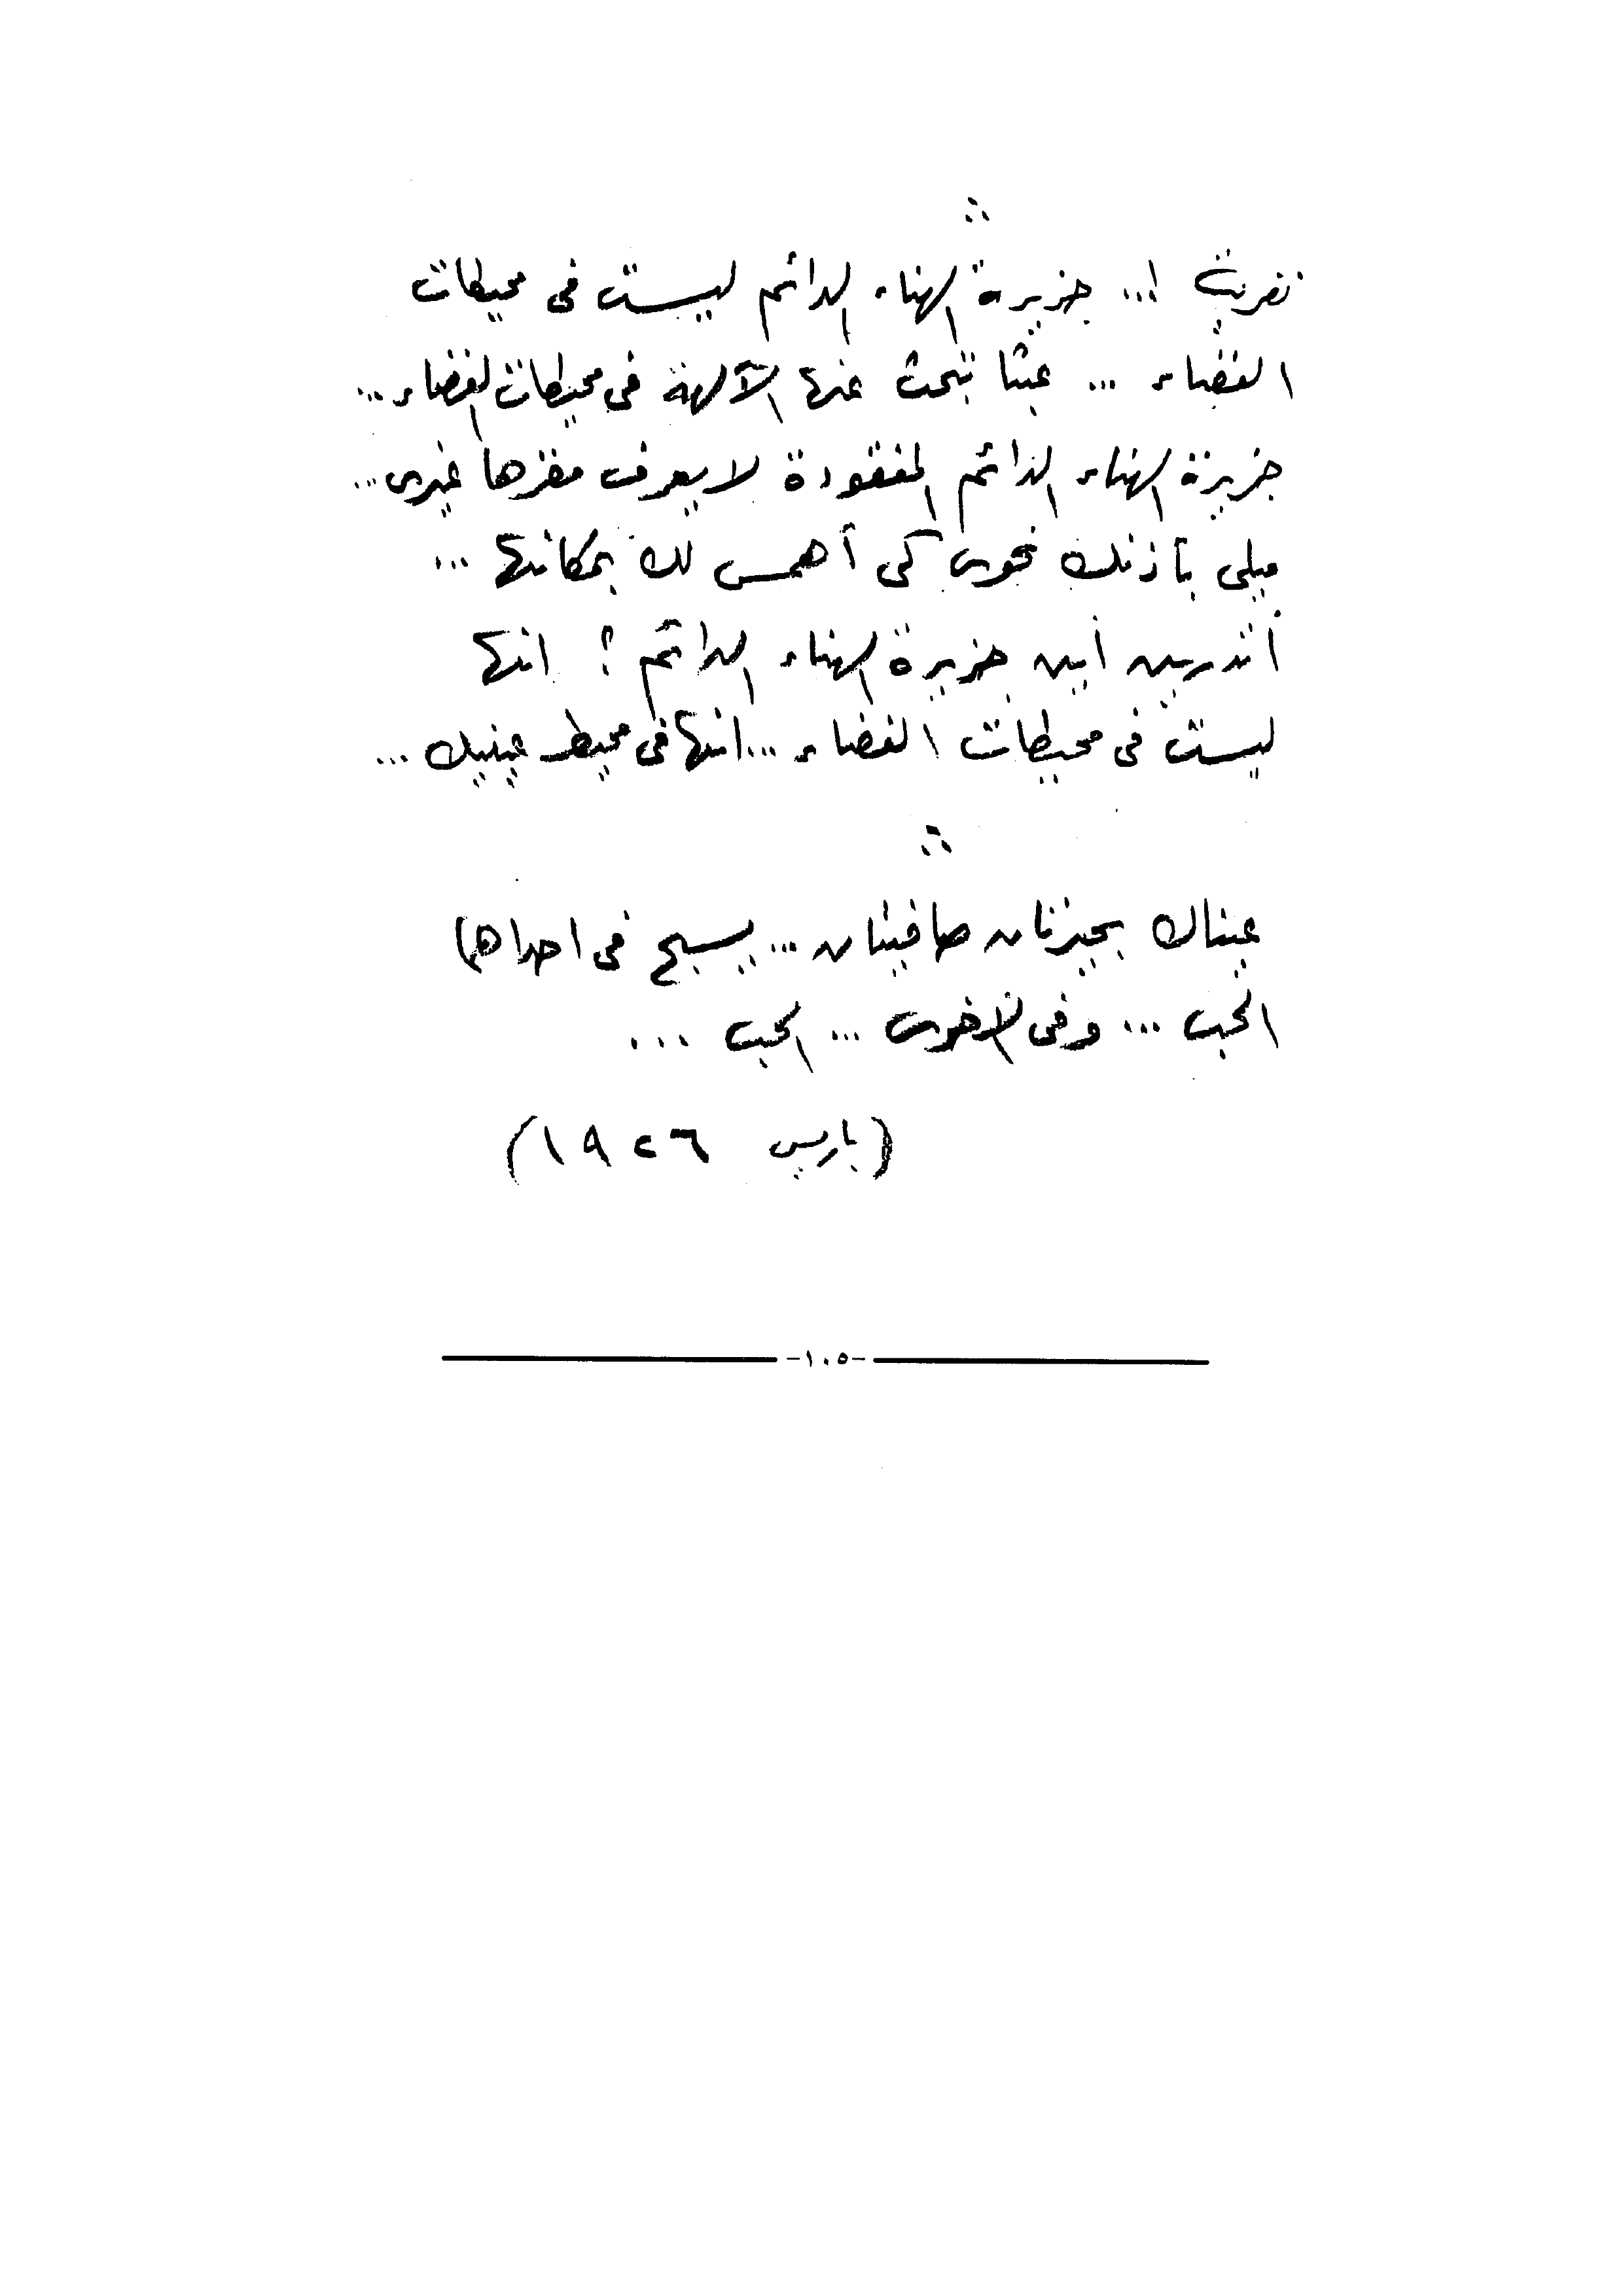 نفريت !... جزيرة الهناء الدائم ليست فى محيطات
الفضاء ... عبثا تبحث عنها الآلهة فى محيطات الفضاء ...
جزيرة الهناء الدائم المفقودة لا يعرف مقرها غيرى ...
ميلى بأذنك نحوى كى أهمس لك بمكانها ...
أتدرين أين جزيرة الهناء الدائم ؟ انها
ليست فى محيطات الفضاء ... انها فى محيط عينيك ...
عيناك بحيرتان صافيتان ... يسبح فى احداهما
الحب ... وفى الأخرى ... الحب ...
(باريس ١٩٢٦)
-١٠٥-